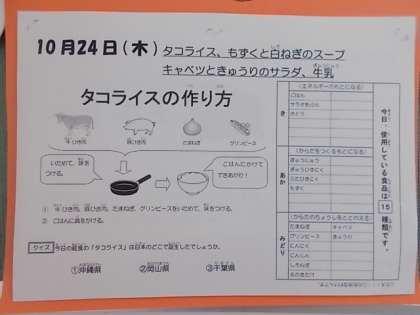 10月24日(木)
タコライス、もずくと白ねぎのスープ
キャベツときゅうりのサラダ、牛乳
タコライスの作り方
牛ひき肉
豚ひき肉
たまねぎ
グリンピース
いためて、味を
つける。
ごはんにかけて
できあがり!
① 牛ひき肉、豚ひき肉、たまねぎ、グリンピースをいためて、味をつける。
② ごはんに具をかける。
クイズ
今日の給食の「タコライス」は日本のどこで誕生したでしょうか。
①沖縄県
②岡山県
③千葉県
き
(エネルギーのもとになる)
ごはん
さとう
あか
(からだをつくるもとになる)
ぎゅうにゅう
ぎゅうひきにく
ぶたひきにく
もずく
みどり
(からだのちょうしをととのえる)
たまねぎ
キャベツ
グリンピース
きゅうり
にんにく
にんじん
しろねぎ
えのきたけ
今日、使用している食品は
15
種類です。